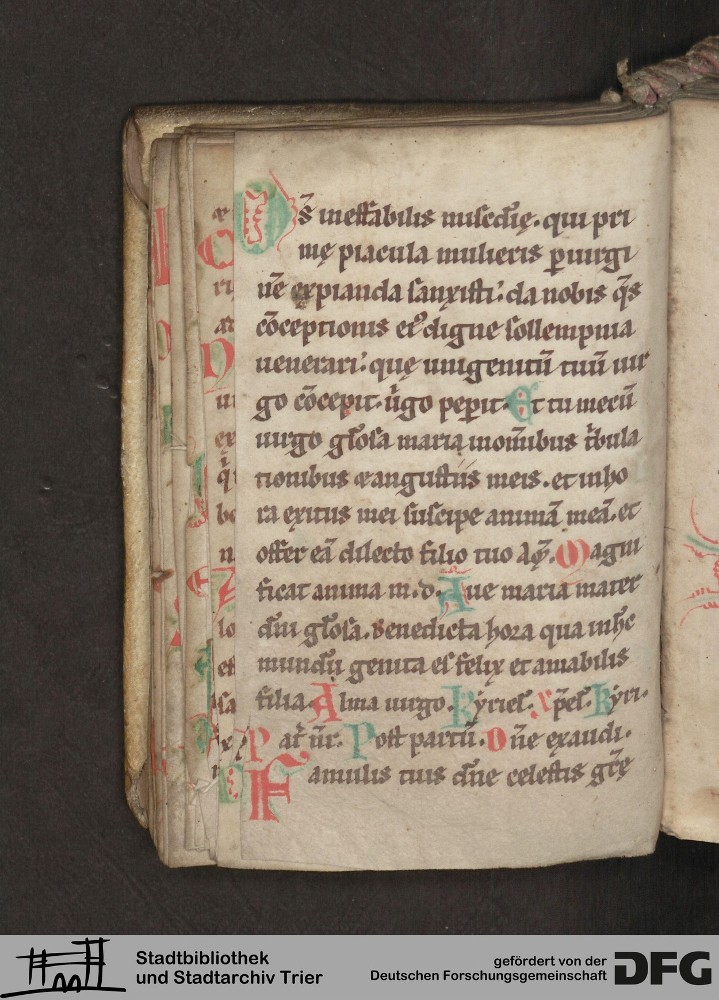 D s̄ ineffabilis mis̄cdīę. qui pri
mę piacula mulieris ꝑ uirgi
nē expianda sanxisti. da nobis q̄s
cōceptionis ei᷒ digne sollempnia
uenerari. quę unigenitū tuū uir
go cōcepit. u̓go peꝑit. Et tu mecū
uirgo gl̄osa maria, in om̄ibus t̓bula
tionibus & angustiis meis. et in ho
ra exitus mei suscipe animā meā. et
offer eā dilecto filio tuo
Magni
ficat anima m. d. Aue maria mater
dn̄i gl̄osa. Benedicta hora qua in hc̄
mundū genita es felix et amabilis
filia. Alma uirgo. Kyriel̓. xp̄el̓. Kyri.
Pat̓ nr̄. Post partū. Dn̄e exaudi.
Famulis tuis dn̄e celestis gr̄ę
Stadtbibliothek
und Stadtarchiv Trier
gefördert von der
Deutschen Forschungsgemeinschaft
DFG